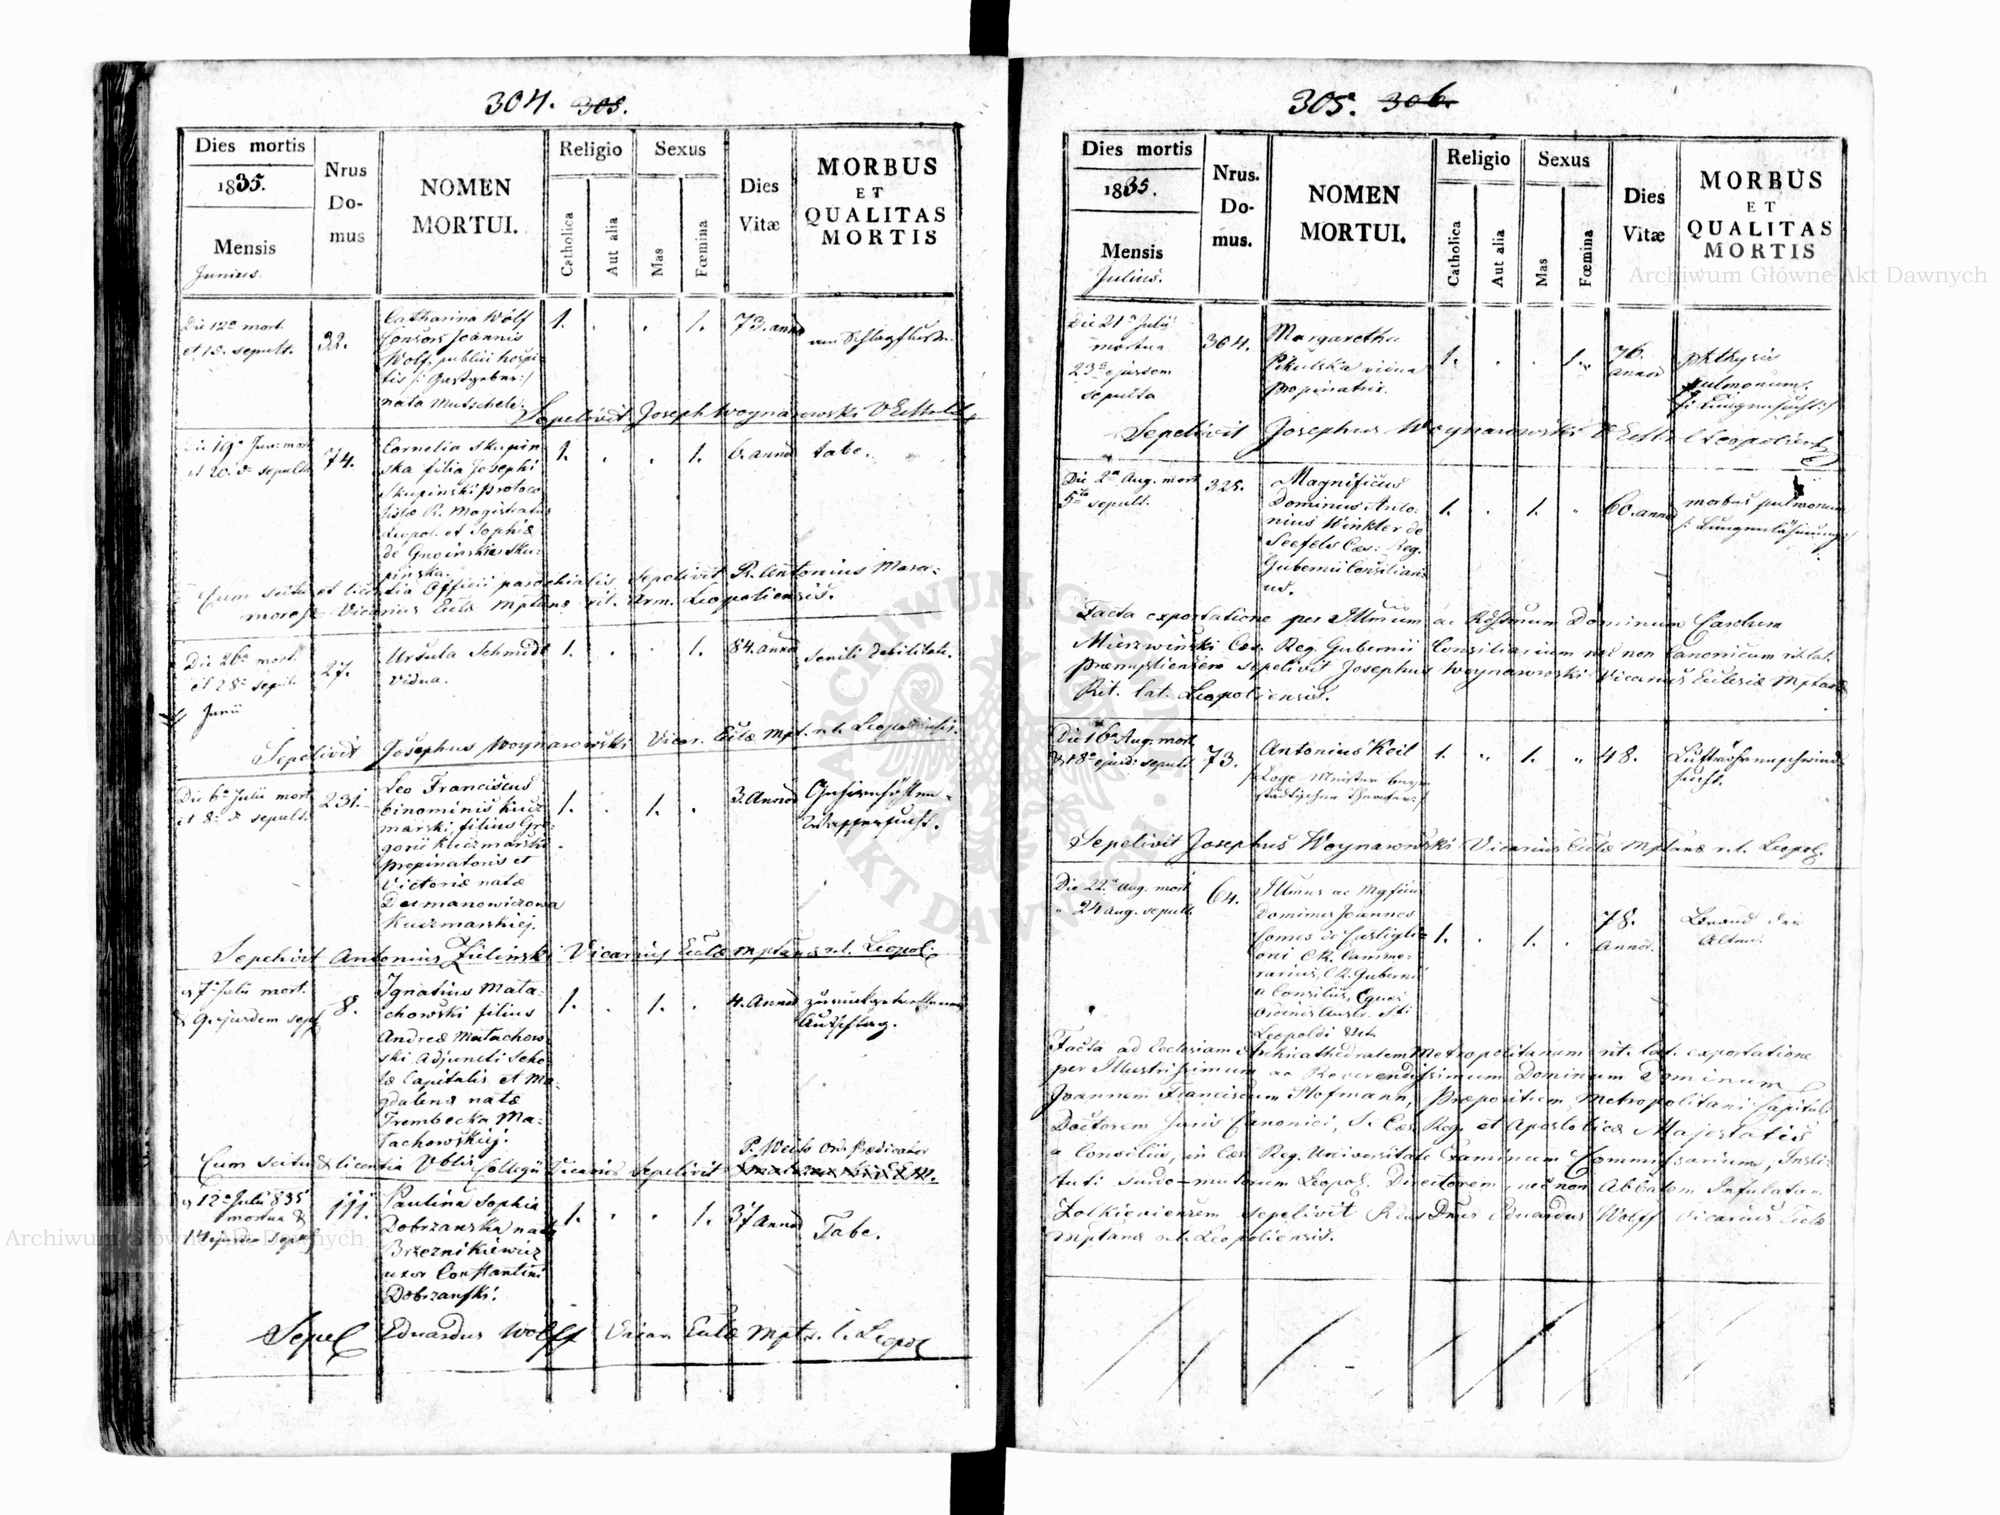 304. 305.
Dies mortis
1835.
Mensis
Junius.
Nrus
Do-
mus
NOMEN
MORTUI.
Religio
Catholica
Aut alia
Sexus
Mas
Fœmina
Dies
Vitæ
MORBUS
ET
QUALITAS
MORTIS
Die 12a mort.
et 15. sepult.
32.
Catharina Wolf
Consors Joannis
Wolf publici hospi-
tis /: Gastgeber :/
nata Mutschele.
1. . . 1.
73. anno
am Schlagfluss.
Sepelivit Joseph Woynarowski
Die 19a Jun: mort
et 20. sepult
74.
Cornelia Skupin-
ska filia Josephi
Skupinski Protoco
listæ R. Magistratus
Leopol. et Sophiæ
de Gnoinskie Sku-
pinska.
1. . . 1.
6. anno
tabe.
Cum scitu et licentia Officii parochialis sepelivit R. Antonius Mora-
morosz Vicarius Eclæ Mptanæ rit. Arm. Leopoliensis.
Die 26a mort.
et 28a sepult.
Junii
27.
Ursula Schmidt
Vidua.
1. . . 1.
84. anno
senili debilitate.
Sepelivit Josephus Woynarowski Vicar. Eclæ Mpt. r. l. Leopoliensis.
Die 6a Julii mort
et 8a sepult.
231.
Leo Franciscus
binominis Kucz
marski, filius Gre-
gorii Kuczmarski
Propinatoris et
Victoriæ natæ
Dermanowiczowa
Kuczmarskiej.
1. . 1. .
3. Annos
Gehirnhöhlen-
Wassersucht.
Sepelivit Antonius Zielinski Vicarius Eclæ Mptanæ r. l. Leopol.
7a Julii mort.
& 9. ejusdem sept
8.
Ignatius Mata-
chowski filius
Andreæ Matachow
ski Adjuncti Scho
læ Capitalis et Ma-
gdalena natæ
Trembecka Ma-
tachowskiej.
1. . 1. .
4. Annos
zurückgetretenen
Ausschlag.
P. Ord. Prædicator
Cum scitu & licentia Vblis Collegii Vicarius Sepelivit
12a Julii 835
mortua &
14 ejusdem sept
111.
Paulina Sophia
Dobrzanska nata
Brzeznikiewicz
uxor Constantini
Dobrzanski.
1. . . 1.
37 Annos
Tabe.
Sepel Eduardus Wolff Vicar. Eclæ Mpt. r. l. Leopol
305. 306.
Dies mortis
1835.
Mensis
Julius.
Nrus.
Do-
mus.
NOMEN
MORTUI.
Religio
Catholica
Aut alia
Sexus
Mas
Fœmina
Dies
Vitæ
MORBUS
ET
QUALITAS
MORTIS
Die 21a Julii
mortua
23a ejusdem
sepulta
304.
Margaretha
Pikulska vidua
Propinatrix.
1. . . 1.
76.
annos
phthysis
pulmonum.
/: Lungensucht :/
Sepelivit Josephus Woynarowski V Leopoliens
Die 2a Aug. mort
5ta sepult.
325.
Magnificus
Dominus Anto-
nius Winkler de
Seefels Cæs: Reg.
Gubernii Consiliari-
us.
1. . 1. "
60. annos
morbus pulmonum
/: Lungenlähmung :/
Facta exportatione per Illmum ac Rdssmum Dominum Carolum
Mierzwinski Cæs. Reg. Gubernii Consiliarium nec non Canonicum rit. lat.
Præmysliensem sepelivit Josephus Woynarowski Vicarius Ecclesiæ Mptanæ
Rit. lat. Leopoliensis.
Die 16a Aug. mort
& 18a ejusd: sepult
73.
Antonius Keil
/: Loge Meister beym
städtischen Theater :/
1. " 1. "
48.
Luftröhrenschwind
sucht.
Sepelivit Josephus Woynarowski Vicarius Eclæ Mptanæ r. l. Leopol.
Die 22a Aug. mort
" 24 Aug. sepult.
64.
Illmus ac Mgficus
Dominus Joannes
Comes de Castigli-
oni C. R. Camme-
rarius, C. R. Guberni
a Consiliis, Eques
Ordinis Austr. Sti
Leopoldi &ct.
1. . 1. .
78.
Annos.
Brand der
Alten.
Facta ad Ecclesiam Archicathedralem Metropolitanam rit. lat. exportatione
per Illustrissimum ac Reverendissimum Dominum Dominum
Joannem Franciscum Hofmann, Præpositum Metropolitani Capituli
Doctorem Juris Canonici, S. Cæs. Reg. et Apostolicæ Majestatis
a Consiliis, in Cæs. Reg. Universitate Examinum Commissarium, Insti-
tuti surdo-mutorum Leopol. Directorem, nec non Abbatem Infulatum
Zolkieviensem sepelivit Rdus Dnus Eduardus Wolff Vicarius Eclæ
Mptanæ r. l. Leopoliensis.
Archiwum Główne Akt Dawnych
Archiwum Główne Akt Dawnych
ARCHIWUM GŁÓWNE AKT DAWNYCH